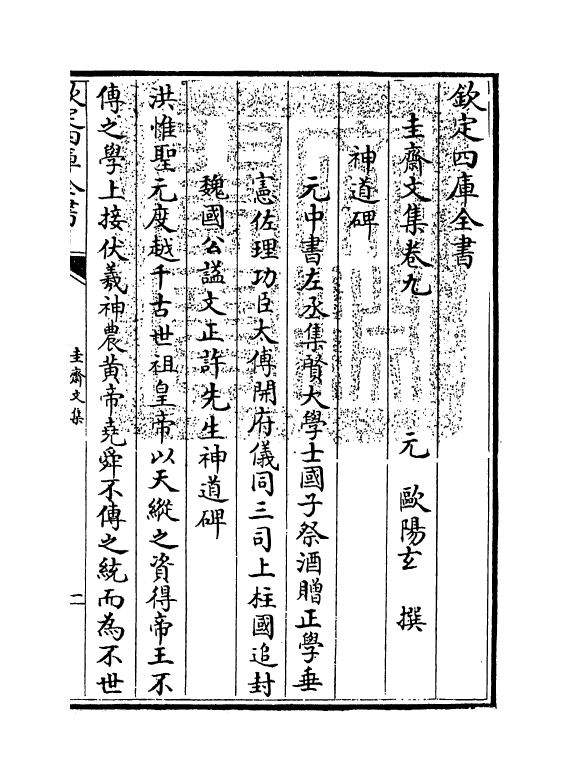 欽定四庫全書
圭齋文集卷九
元 歐陽玄 撰
神道碑
元中書左丞集賢大學士國子祭酒贈正學垂
憲佐理功臣太傅開府儀同三司上柱國追封
魏國公諡文正許先生神道碑
洪惟聖元度越千古世祖皇帝以天縱之資得帝王不
傳之學上接伏羲神農黄帝堯舜不傳之統而為不世
欽定四庫全書
圭齋文集